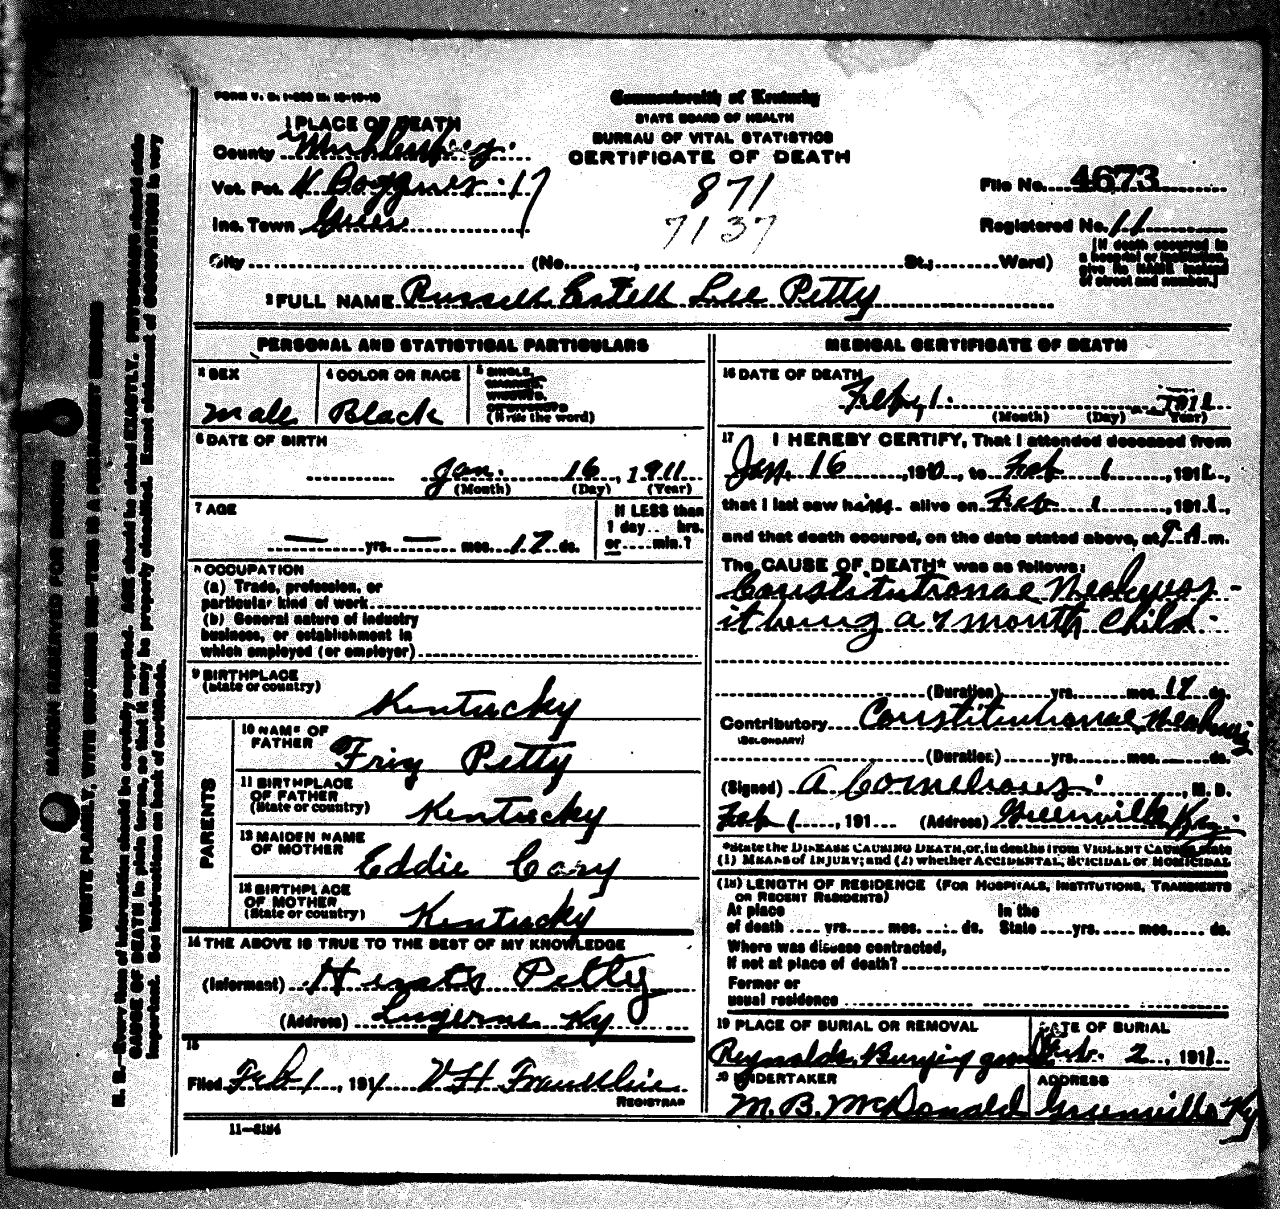 FORM V. S. 1-
Commonwealth of Kentucky
STATE BOARD OF HEALTH
BUREAU OF VITAL STATISTICS
CERTIFICATE OF DEATH
1 PLACE OF DEATH
County
Vot. Pct. 17
Inc. Town
City (No. , St.; Ward)
871
7137
File No. 4673
Registered No. 11
[If death occurred in
a hospital or institution,
give its NAME instead
of street and number.]
2 FULL NAME Russell Estell Lee Petty
PERSONAL AND STATISTICAL PARTICULARS
3 SEX
male
4 COLOR OR RACE
Black
5 SINGLE,
MARRIED,
WIDOWED,
OR DIVORCED
(Write the word)
6 DATE OF BIRTH
Jan. 16, 1911
(Month) (Day) (Year)
7 AGE
— yrs. — mos. 17 ds.
If LESS than
1 day .. hrs.
or .... min.?
8 OCCUPATION
(a) Trade, profession, or
particular kind of work
(b) General nature of industry
business, or establishment in
which employed (or employer)
9 BIRTHPLACE
(State or country)
Kentucky
PARENTS
10 NAME OF
FATHER
Petty
11 BIRTHPLACE
OF FATHER
(State or country)
Kentucky
12 MAIDEN NAME
OF MOTHER
Eddie Cary
13 BIRTHPLACE
OF MOTHER
(State or country)
Kentucky
14 THE ABOVE IS TRUE TO THE BEST OF MY KNOWLEDGE
(Informant) Petty
(Address) Luzerne Ky
15
Filed Feb 1, 1911 Franklin
REGISTRAR
11—5184
MEDICAL CERTIFICATE OF DEATH
16 DATE OF DEATH
Feby 1. 1911
(Month) (Day) (Year)
17 I HEREBY CERTIFY, That I attended deceased from
Jan. 16, 191, to Feb 1, 1911,
that I last saw him alive on Feb 1, 1911,
and that death occured, on the date stated above, at 9 A m.
The CAUSE OF DEATH* was as follows:
Constitutional Weakness -
it being a 7 month child.
(Duration) yrs. mos. 17 ds.
Contributory Constitutional Weakness
(SECONDARY)
(Duration) yrs. mos. ds.
(Signed) A , M. D.
Feb 1, 191 (Address) Greenville Ky.
*State the DISEASE CAUSING DEATH, or, in deaths from VIOLENT CAUSES, state
(1) MEANS OF INJURY; and (2) whether ACCIDENTAL, SUICIDAL or HOMICIDAL
(18) LENGTH OF RESIDENCE (FOR HOSPITALS, INSTITUTIONS, TRANSIENTS
OR RECENT RESIDENTS)
At place
of death yrs. mos. ds.
In the
State yrs. mos. ds.
Where was disease contracted,
If not at place of death?
Former or
usual residence
19 PLACE OF BURIAL OR REMOVAL
Reynolds Burying ground
DATE OF BURIAL
Feb. 2, 1911
20 UNDERTAKER
M. B. McDonald
ADDRESS
Greenville Ky
MARGIN RESERVED FOR BINDING
WRITE PLAINLY, WITH UNFADING INK—THIS IS A PERMANENT RECORD
N. B.—Every item of information should be carefully supplied. AGE should be stated EXACTLY. PHYSICIANS should state
CAUSE OF DEATH in plain terms, so that it may be properly classified. Exact statement of OCCUPATION is very
important. See instructions on back of certificate.